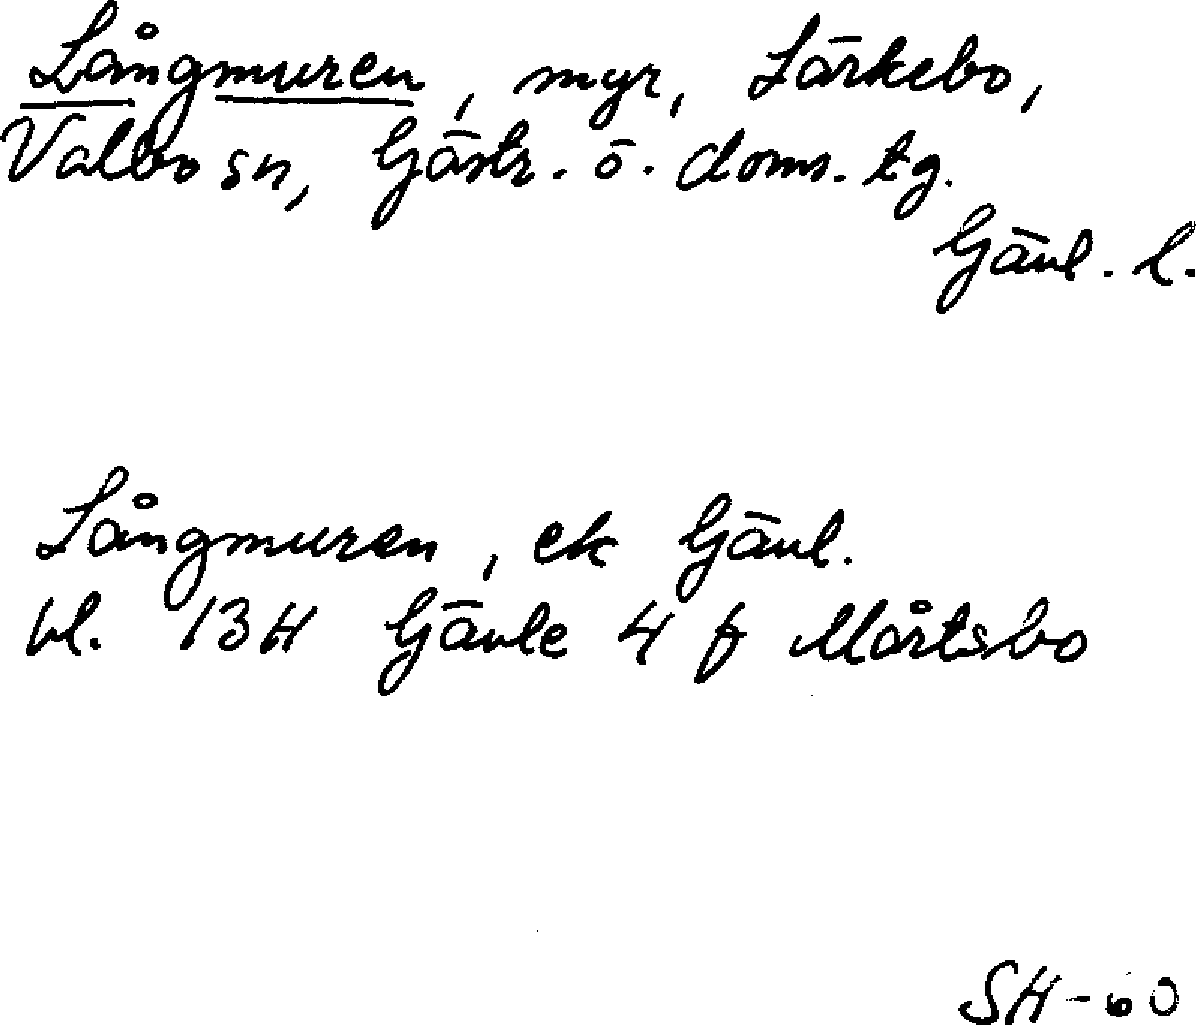 Långmuren, myr, Lärkebo,
Valbo sn, Gästr. ö. doms. tg.
Gävl. l.
Långmuren, ek Gävl.
bl. 13H Gävle 4 f Mårtsbo
SH-60